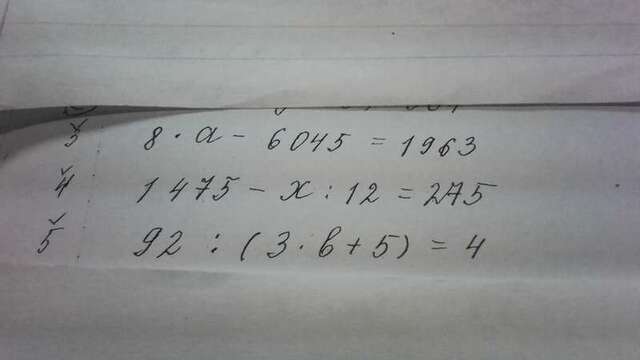 3 8 · a - 6045 = 1963
4 1475 - x : 12 = 275
5 92 : (3 · b + 5) = 4